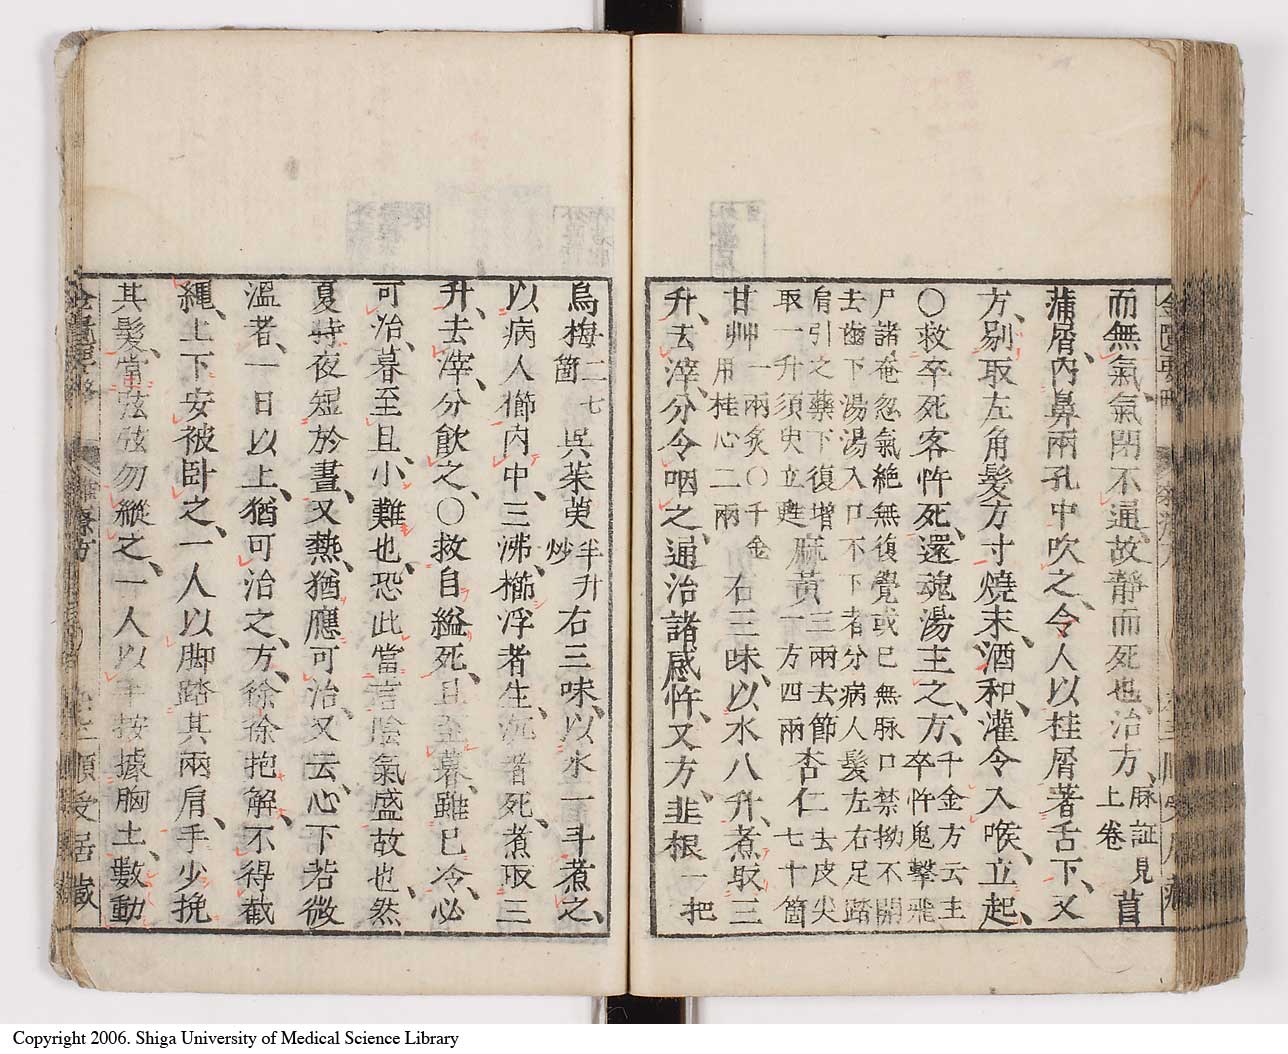 而無氣氣閉不通故靜而死也治方脉証見上卷菖
蒲屑內鼻兩孔中吹之令人以桂屑著舌下又
方剔取左角髮方寸燒末酒和灌令入喉立起
○救卒死客忤死還魂湯主之方千金方云主卒忤鬼擊飛
尸諸奄忽氣絶無復覺或已無脉口禁拗不開
去齒下湯湯入口不下者分病人髮左右足踏
肩引之藥下復增取一升須臾立甦麻黃三兩去節一方四兩杏仁去皮尖七十箇
甘艸一兩炙○千金用桂心二兩右三味以水八升煮取三
升去滓分令咽之通治諸感忤又方韭根一把
烏梅二七箇吳茱萸半升炒右三味以水一斗煮之
以病人櫛內中三沸櫛浮者生沉者死煮取三
升去滓分飲之○救自縊死旦至暮雖已冷必
可治暮至旦小難也恐此當言陰氣盛故也然
夏時夜短於晝又熱猶應可治又云心下若微
溫者一日以上猶可治之方徐徐抱解不得截
繩上下安被卧之一人以脚踏其兩肩手少挽
其髮當弦弦勿縱之一人以手按據胸上數動
金匱要略 雜療方 順受居藏
Copyright 2006. Shiga University of Medical Science Library